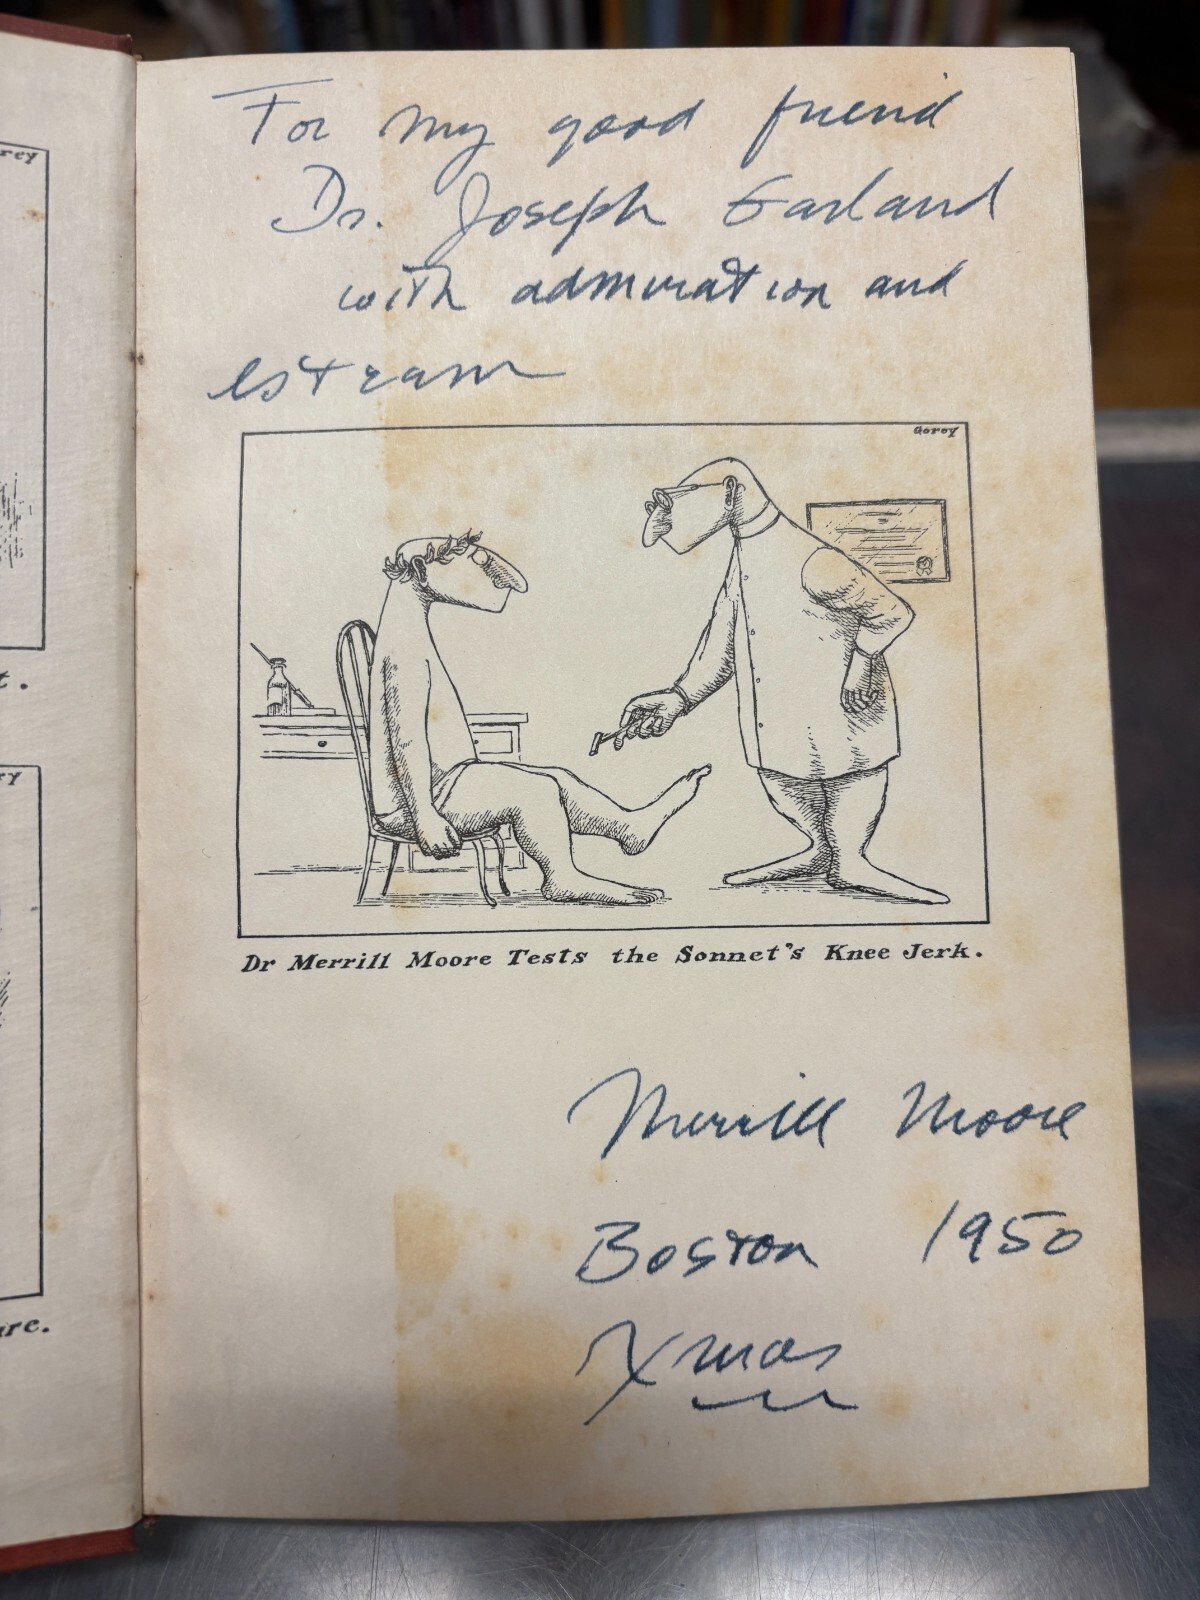 For my good friend
Dr. Joseph Garland
with admiration and
Gorey
Dr Merrill Moore Tests the Sonnet's Knee Jerk.
Merrill Moore
Boston 1950
Xmas
rey
t.
ry
are.